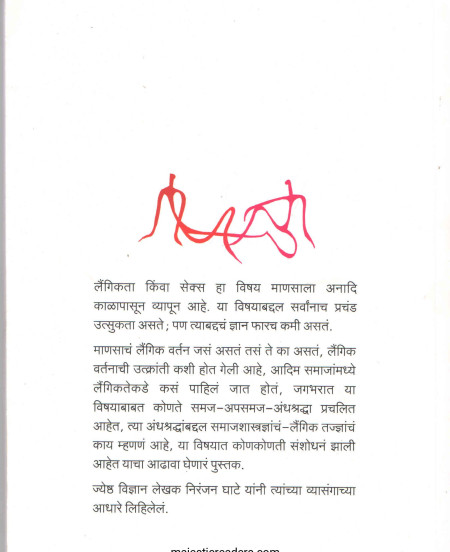 लैंगिकता किंवा सेक्स हा विषय माणसाला अनादि
काळापासून व्यापून आहे. या विषयाबद्दल सर्वांनाच प्रचंड
उत्सुकता असते; पण त्याबद्दचं ज्ञान फारच कमी असतं.
माणसाचं लैंगिक वर्तन जसं असतं तसं ते का असतं, लैंगिक
वर्तनाची उत्क्रांती कशी होत गेली आहे, आदिम समाजांमध्ये
लैंगिकतेकडे कसं पाहिलं जात होतं, जगभरात या
विषयाबाबत कोणते समज-अपसमज-अंधश्रद्धा प्रचलित
आहेत, त्या अंधश्रद्धांबद्दल समाजशास्त्रज्ञांचं-लैंगिक तज्ज्ञांचं
काय म्हणणं आहे, या विषयात कोणकोणती संशोधनं झाली
आहेत याचा आढावा घेणारं पुस्तक.
ज्येष्ठ विज्ञान लेखक निरंजन घाटे यांनी त्यांच्या व्यासंगाच्या
आधारे लिहिलेलं.